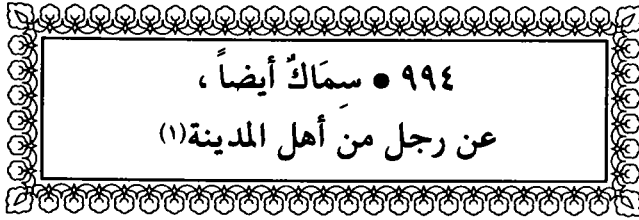 ٩٩٤ • سِمَاكٌ أيضاً ،
عن رجل من أهل المدينة(١)